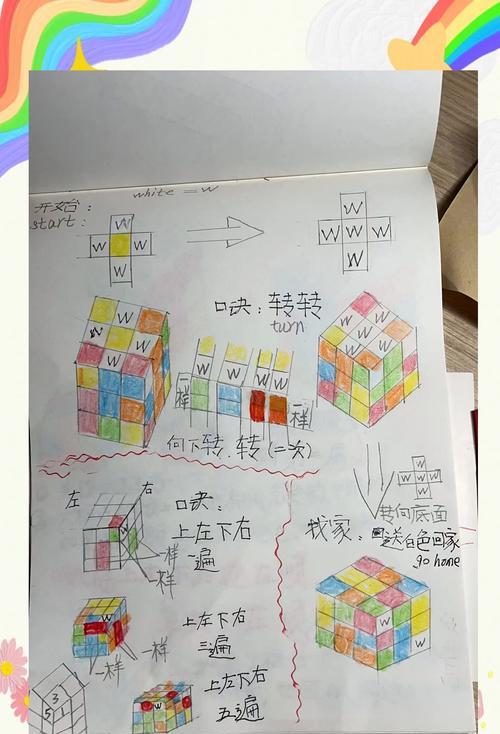 white = W
开始：
start：
W
W W
W
W
W W W
W
口诀：转转
turn
W
W
W
W
W W W W
一样
一样
向下转.转（二次）
W
W
W
W
W
左 右
口诀：
上左下右
一遍
一样
一样
W
W W W
W
转向底面
找家：送白色回家
go home
上左下右
三遍
一样
一样
W
W
上左下右
五遍
W
3
5 1